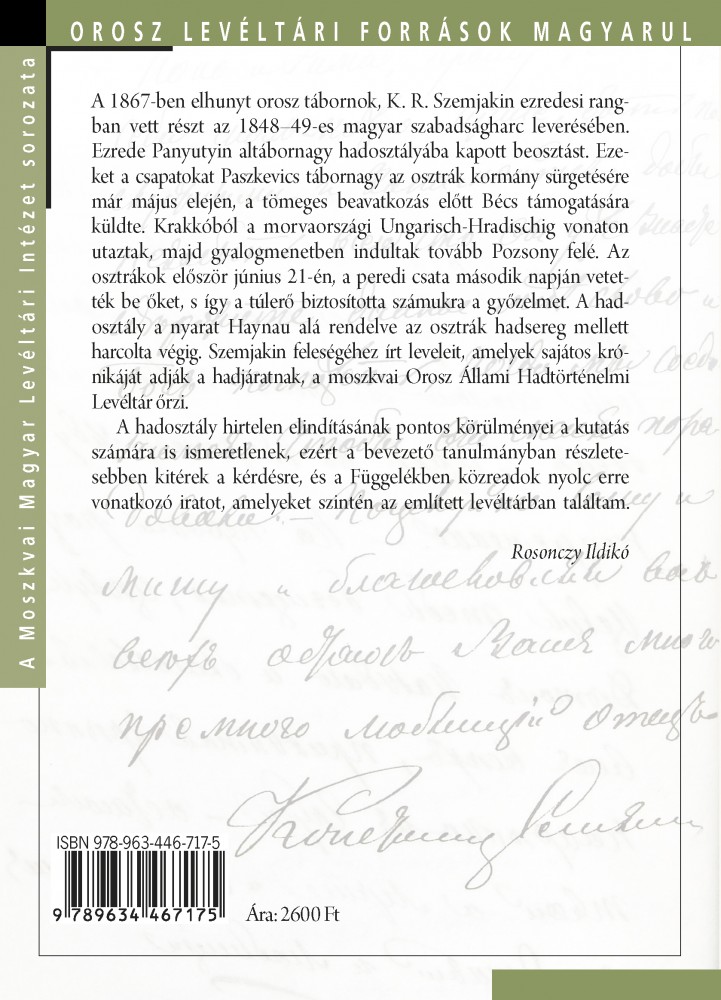 OROSZ LEVÉLTÁRI FORRÁSOK MAGYARUL
A Moszkvai Magyar Levéltári Intézet sorozata
A 1867-ben elhunyt orosz tábornok, K. R. Szemjakin ezredesi rang-
ban vett részt az 1848–49-es magyar szabadságharc leverésében.
Ezrede Panyutyin altábornagy hadosztályába kapott beosztást. Eze-
ket a csapatokat Paszkevics tábornagy az osztrák kormány sürgetésére
már május elején, a tömeges beavatkozás előtt Bécs támogatására
küldte. Krakkóból a morvaországi Ungarisch-Hradischig vonaton
utaztak, majd gyalogmenetben indultak tovább Pozsony felé. Az
osztrákok először június 21-én, a peredi csata második napján vetet-
ték be őket, s így a túlerő biztosította számukra a győzelmet. A had-
osztály a nyarat Haynau alá rendelve az osztrák hadsereg mellett
harcolta végig. Szemjakin feleségéhez írt leveleit, amelyek sajátos kró-
nikáját adják a hadjáratnak, a moszkvai Orosz Állami Hadtörténelmi
Levéltár őrzi.
A hadosztály hirtelen elindításának pontos körülményei a kutatás
számára is ismeretlenek, ezért a bevezető tanulmányban részlete-
sebben kitérek a kérdésre, és a Függelékben közreadok nyolc erre
vonatkozó iratot, amelyeket szintén az említett levéltárban találtam.
Rosonczy Ildikó
ISBN 978-963-446-717-5
9 789634 467175
Ára: 2600 Ft